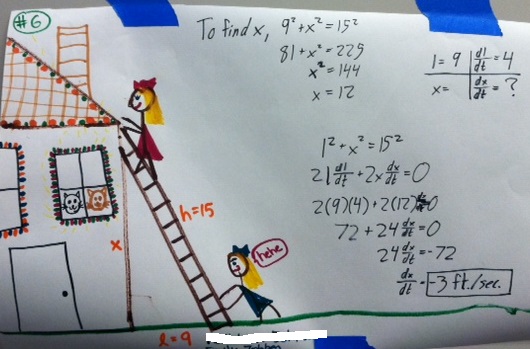 #6
To find x, 9² + x² = 15²
81 + x² = 225
x² = 144
x = 12
l = 9 dl/dt = 4
x = dx/dt = ?
l² + x² = 15²
2l dl/dt + 2x dx/dt = 0
2(9)(4) + 2(12) dx/dt = 0
72 + 24 dx/dt = 0
24 dx/dt = -72
dx/dt = -3 ft./sec.
h=15
x
hehe
l = 9